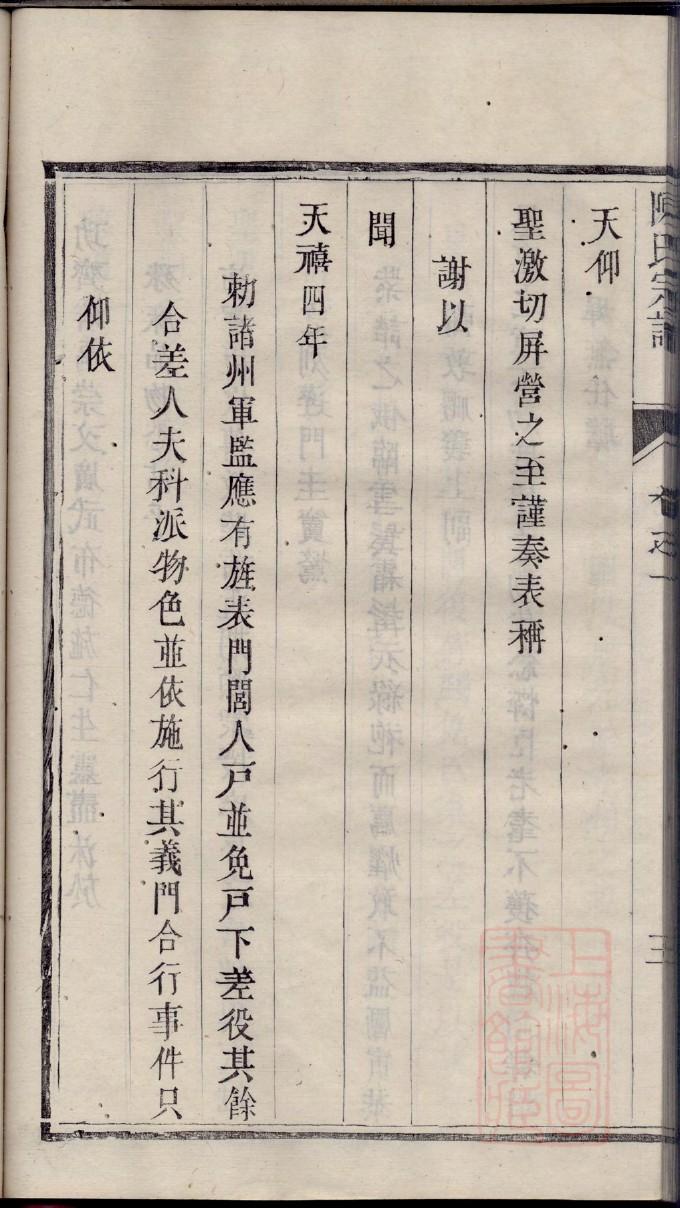 陳氏宗譜
卷之一
三
天仰
聖激切屏營之至謹奏表稱
謝以
聞
天禧四年
勅諸州軍監應有旌表門閭人戸並免戸下差役其餘
合差人夫科派物色並依施行其義門合行事件只
仰依
上海圖書館藏